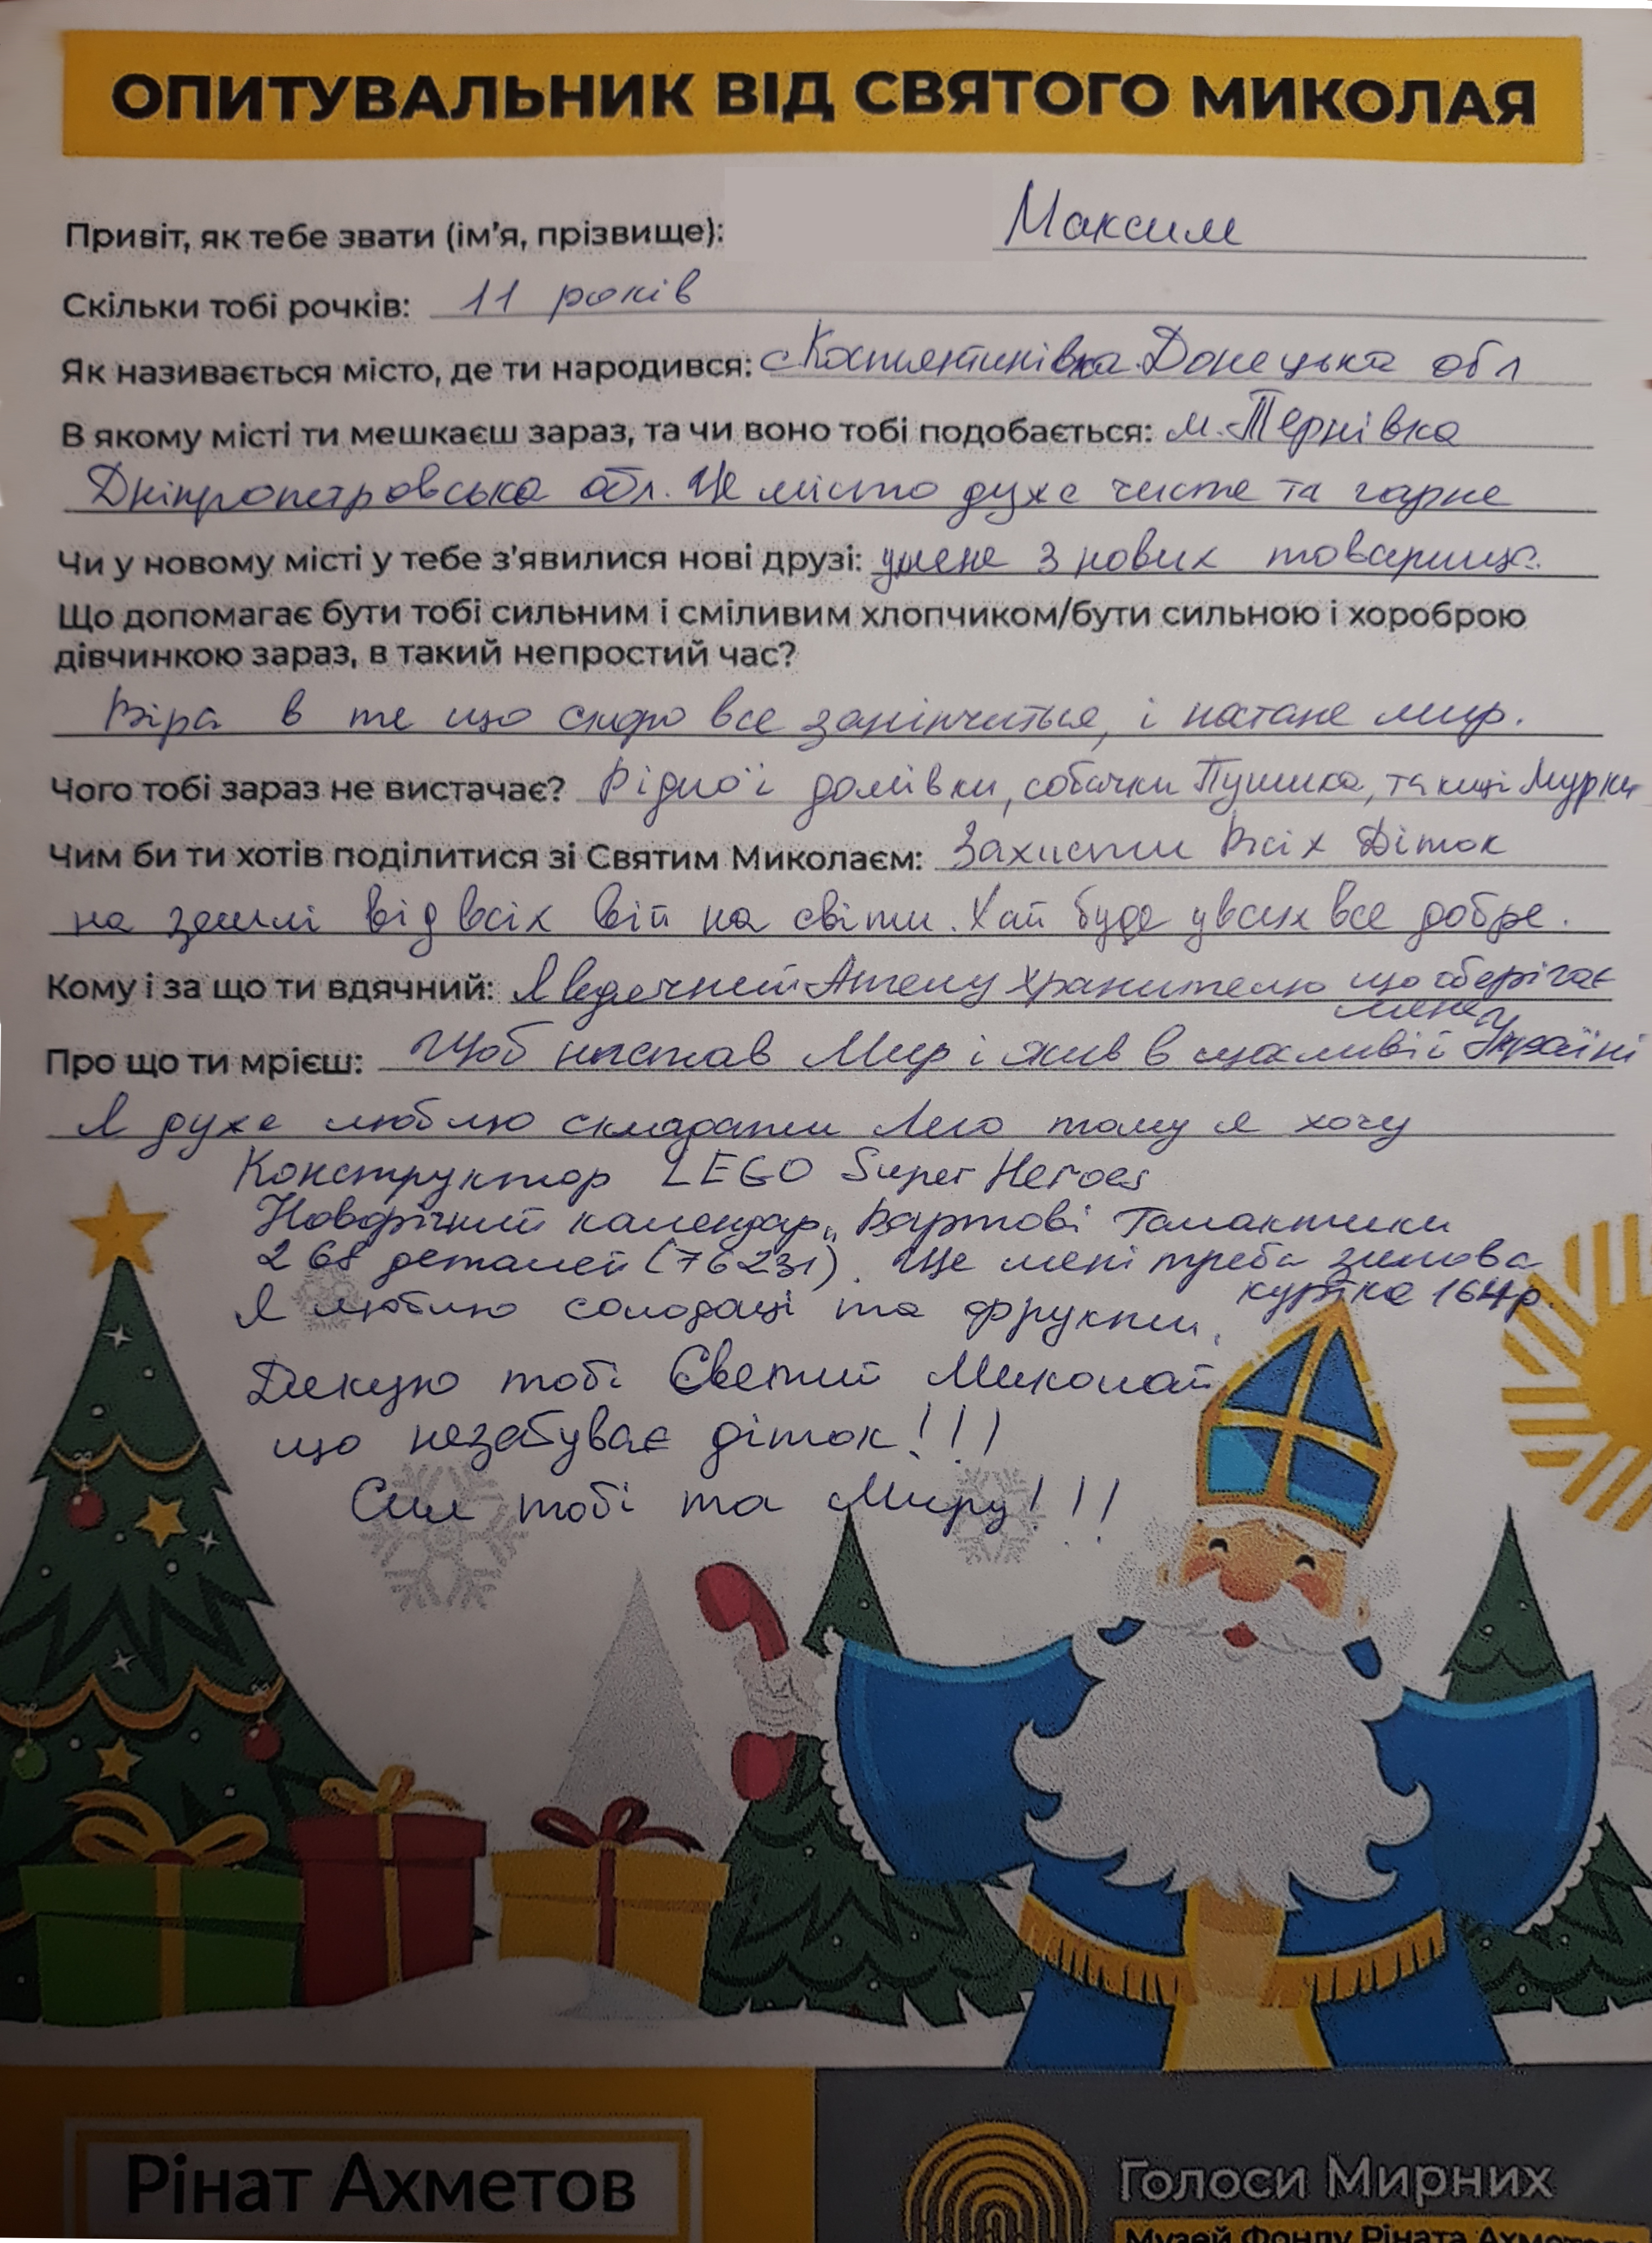 ОПИТУВАЛЬНИК ВІД СВЯТОГО МИКОЛАЯ
Привіт, як тебе звати (ім'я, прізвище): Максим
Скільки тобі рочків: 11 років
Як називається місто, де ти народився: Костянтинівка Донецька обл
В якому місті ти мешкаєш зараз, та чи воно тобі подобається: м. Тернівка
Дніпропетровська обл. Це місто дуже чисте та гарне
Чи у новому місті у тебе з'явилися нові друзі: у мене 3 нових товариша.
Що допомагає бути тобі сильним і сміливим хлопчиком/бути сильною і хороброю
дівчинкою зараз, в такий непростий час?
Віра в те що скоро все закінчиться, і настане мир.
Чого тобі зараз не вистачає? Рідної домівки, собачки Пушика, та киці Мурки
Чим би ти хотів поділитися зі Святим Миколаєм: Захисти Всіх Діток
на землі від всіх війн на світи. Хай буде у всих все добре.
Кому і за що ти вдячний: Я вдячний Ангелу Хранителю що оберігає
мене
Про що ти мрієш: Щоб настав Мир і жив в щасливій Україні
Я дуже люблю складати Лего тому я хочу
Конструктор LEGO Super Heroes
Новорічний календар „Вартові Галактики
268 деталей (76231). Ще мені треба зимова
куртка 164р.
Я люблю солодощі та фрукти.
Дякую тобі Святий Миколай
що незабуває діток!!!
Сил тобі та Миру!!!
Рінат Ахметов
Голоси Мирних
Музей Фонду Ріната Ахметова